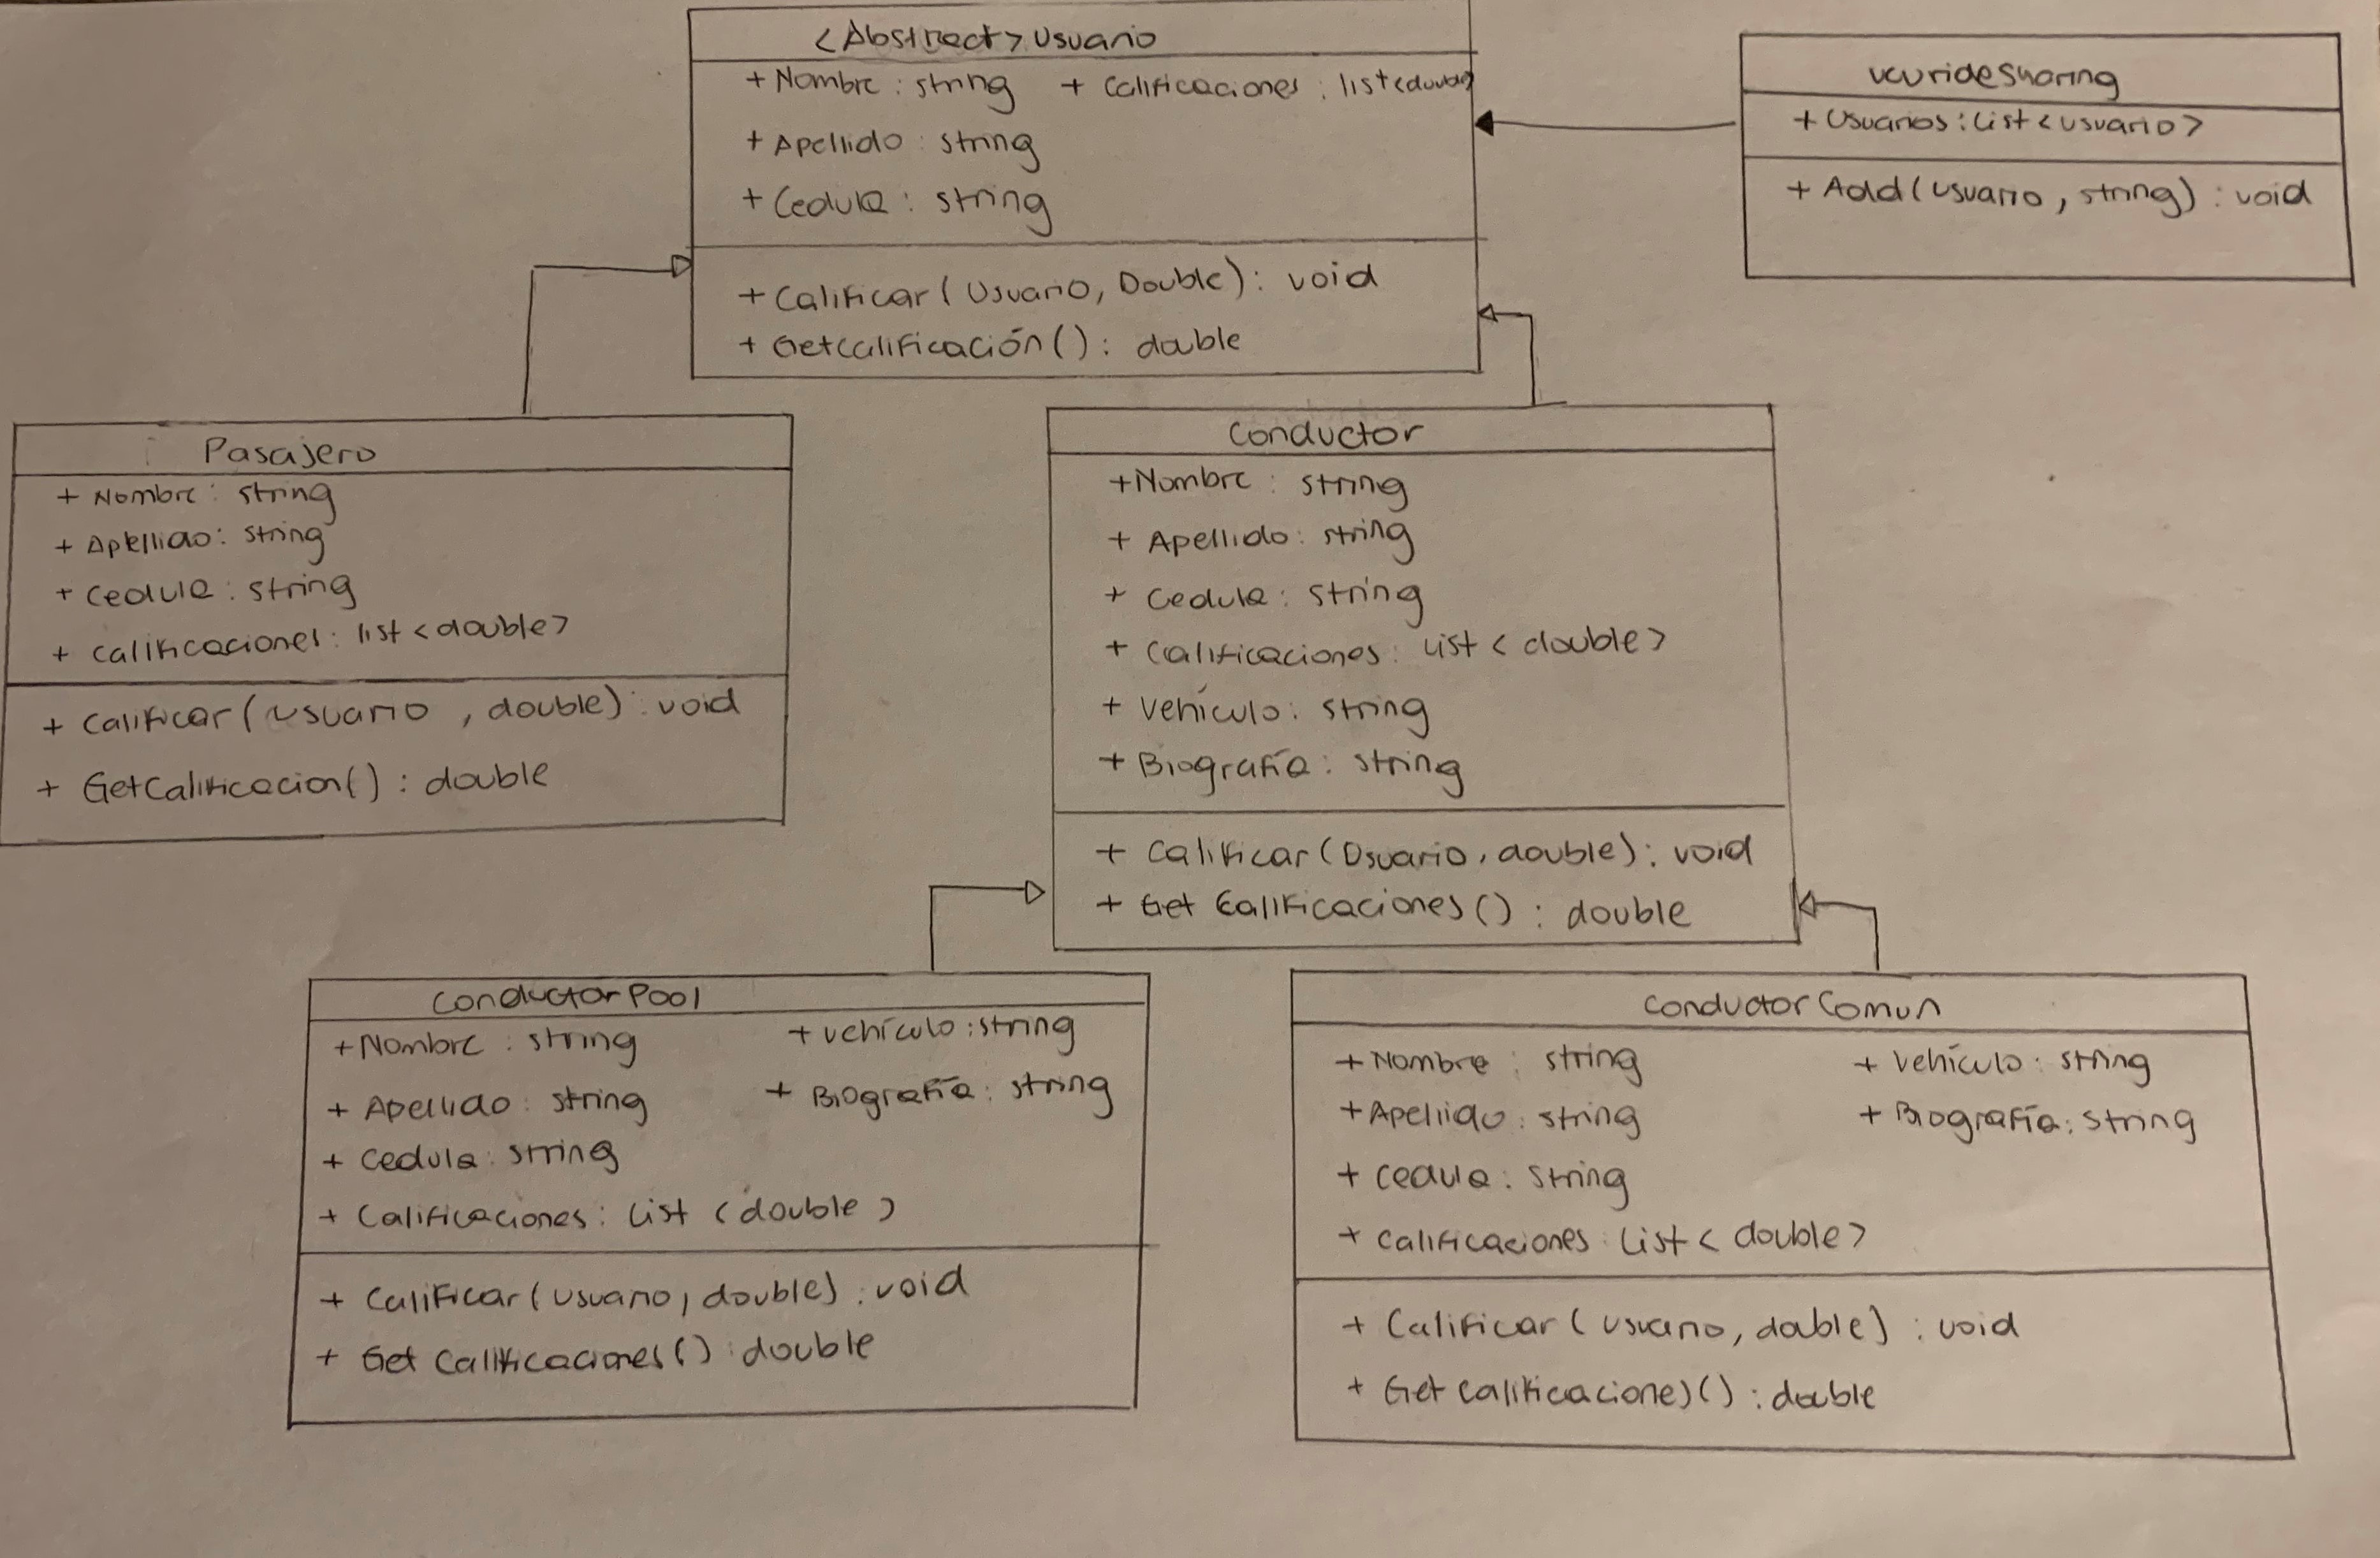 <Abstract> Usuario
+ Nombre : string + Calificaciones : list<double>
+ Apellido : string
+ Cedula : string
+ Calificar ( Usuario, Double) : void
+ Getcalificación () : double
ucurideSharing
+ Usuarios : List < usuario >
+ Add ( usuario , string) : void
Pasajero
+ Nombre : string
+ Apellido : string
+ Cedula : string
+ Calificaciones : list < double >
+ Calificar ( usuario , double) : void
+ GetCalificacion() : double
Conductor
+ Nombre : string
+ Apellido : string
+ Cedula : string
+ Calificaciones : List < double >
+ Vehículo : string
+ Biografía : string
+ Calificar ( Usuario, double) : void
+ Get Calificaciones () : double
Conductor Pool
+ Nombre : string + vehículo : string
+ Apellido : string + Biografía : string
+ Cedula : string
+ Calificaciones : List < double >
+ Calificar ( usuario, double) : void
+ Get Calificaciones () : double
Conductor Comun
+ Nombre : string + Vehículo : string
+ Apellido : string + Biografía : string
+ Cedula : string
+ Calificaciones : List < double >
+ Calificar ( usuario, doble) : void
+ Get calificaciones () : double